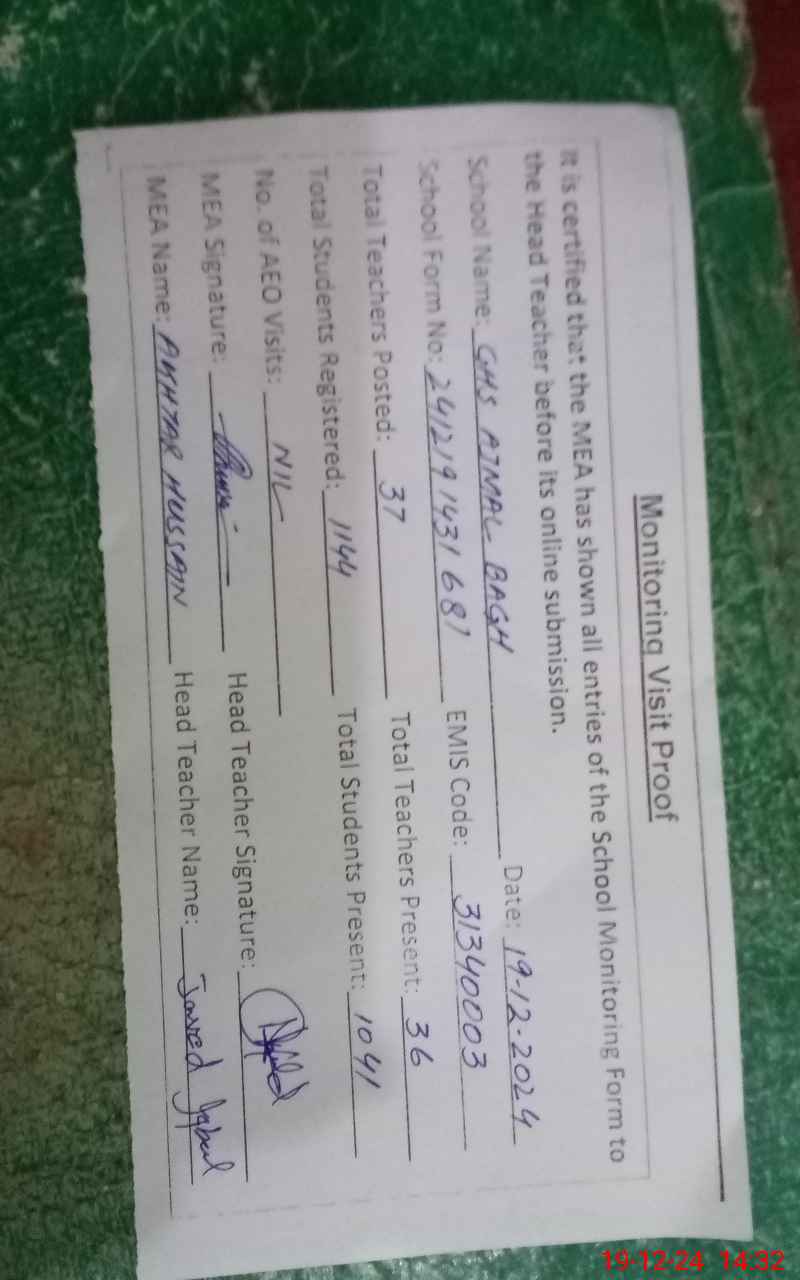 Monitoring Visit Proof
It is certified that the MEA has shown all entries of the School Monitoring Form to
the Head Teacher before its online submission.
School Name: GHS AJMAL BAGH Date: 19-12-2024
School Form No: 241219 1431 681 EMIS Code: 31340003
Total Teachers Posted: 37 Total Teachers Present: 36
Total Students Registered: 1144 Total Students Present: 1041
No. of AEO Visits: NIL
MEA Signature: Head Teacher Signature:
MEA Name: AKHTAR HUSSAIN Head Teacher Name: Javed Iqbal
19-12-24 14:32